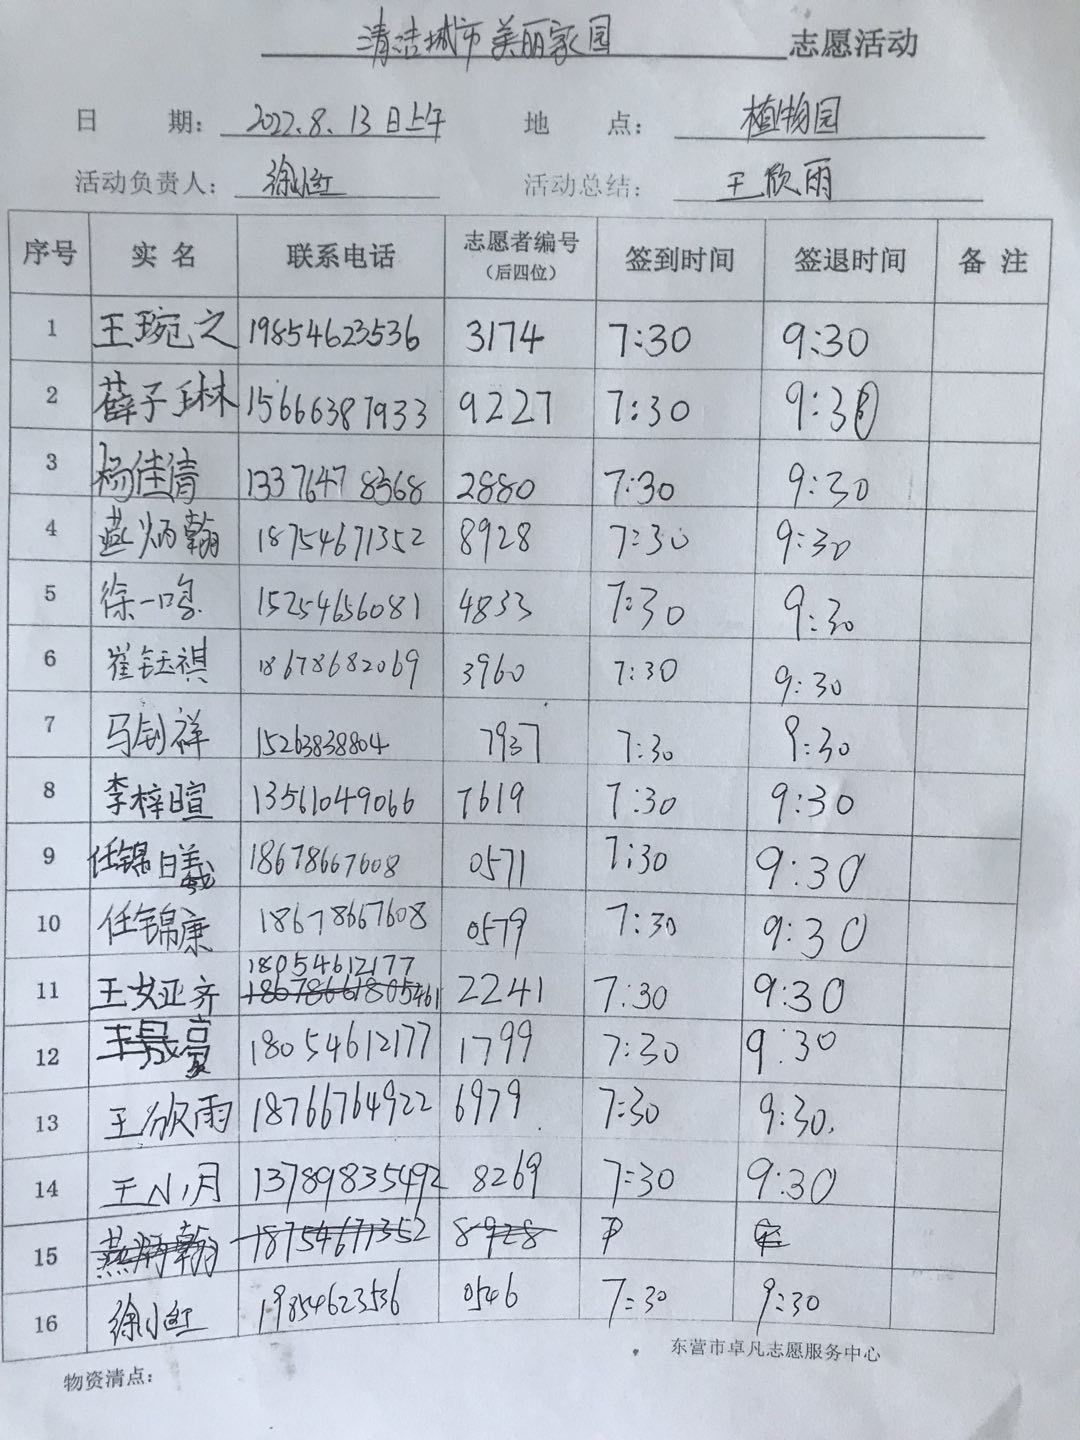 清洁城市美丽家园 志愿活动
日 期： 2022.8.13日上午 地 点： 植物园
活动负责人： 徐小红 活动总结： 王欣雨
序号 实名 联系电话 志愿者编号（后四位） 签到时间 签退时间 备注
1 王琬之 19854623536 3174 7:30 9:30
2 薛子琳 15666387933 9227 7:30 9:30
3 杨佳倩 13376478368 2880 7:30 9:30
4 燕炳翰 18754671352 8928 7:30 9:30
5 徐一鸣 15254656081 4833 7:30 9:30
6 崔钰祺 18678682069 3960 7:30 9:30
7 马钊祥 15263838804 7937 7:30 9:30
8 李梓暄 13561049066 7619 7:30 9:30
9 任锦曦 18678667608 0571 7:30 9:30
10 任锦康 18678667608 0579 7:30 9:30
18054612177
11 王安亚齐 2241 7:30 9:30
12 王晟 18054612177 1799 7:30 9:30
13 王欣雨 18766764922 6979 7:30 9:30.
14 王小月 13789835492 8269 7:30 9:30
15 燕炳翰 18754671352 8928
16 徐小红 19854623536 0546 7:30 9:30
东营市卓凡志愿服务中心
物资清点：